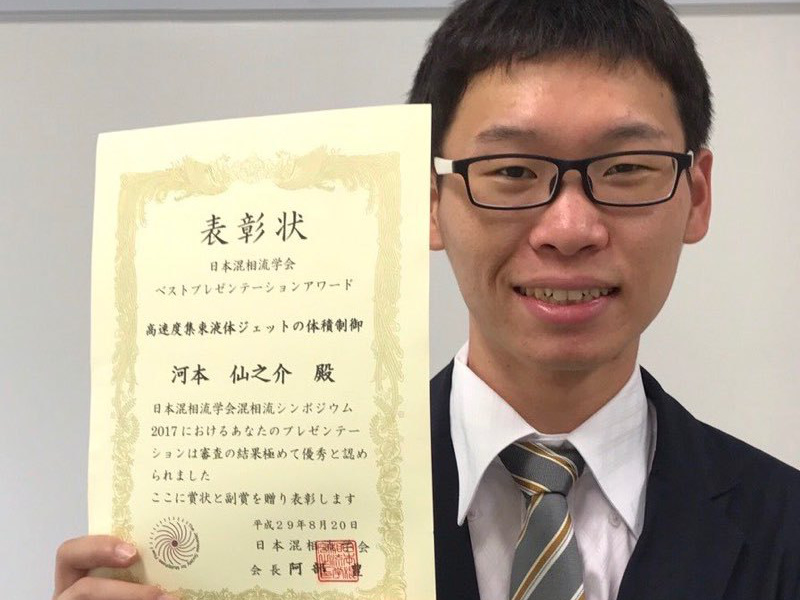 表彰状
日本混相流学会
ベストプレゼンテーションアワード
高速度集束液体ジェットの体積制御
河本 仙之介 殿
日本混相流学会混相流シンポジウム
2017におけるあなたのプレゼンテー
ションは審査の結果極めて優秀と認め
られました
ここに賞状と副賞を贈り表彰します
平成29年8月20日
日本混相流学会
会長 阿部 豊